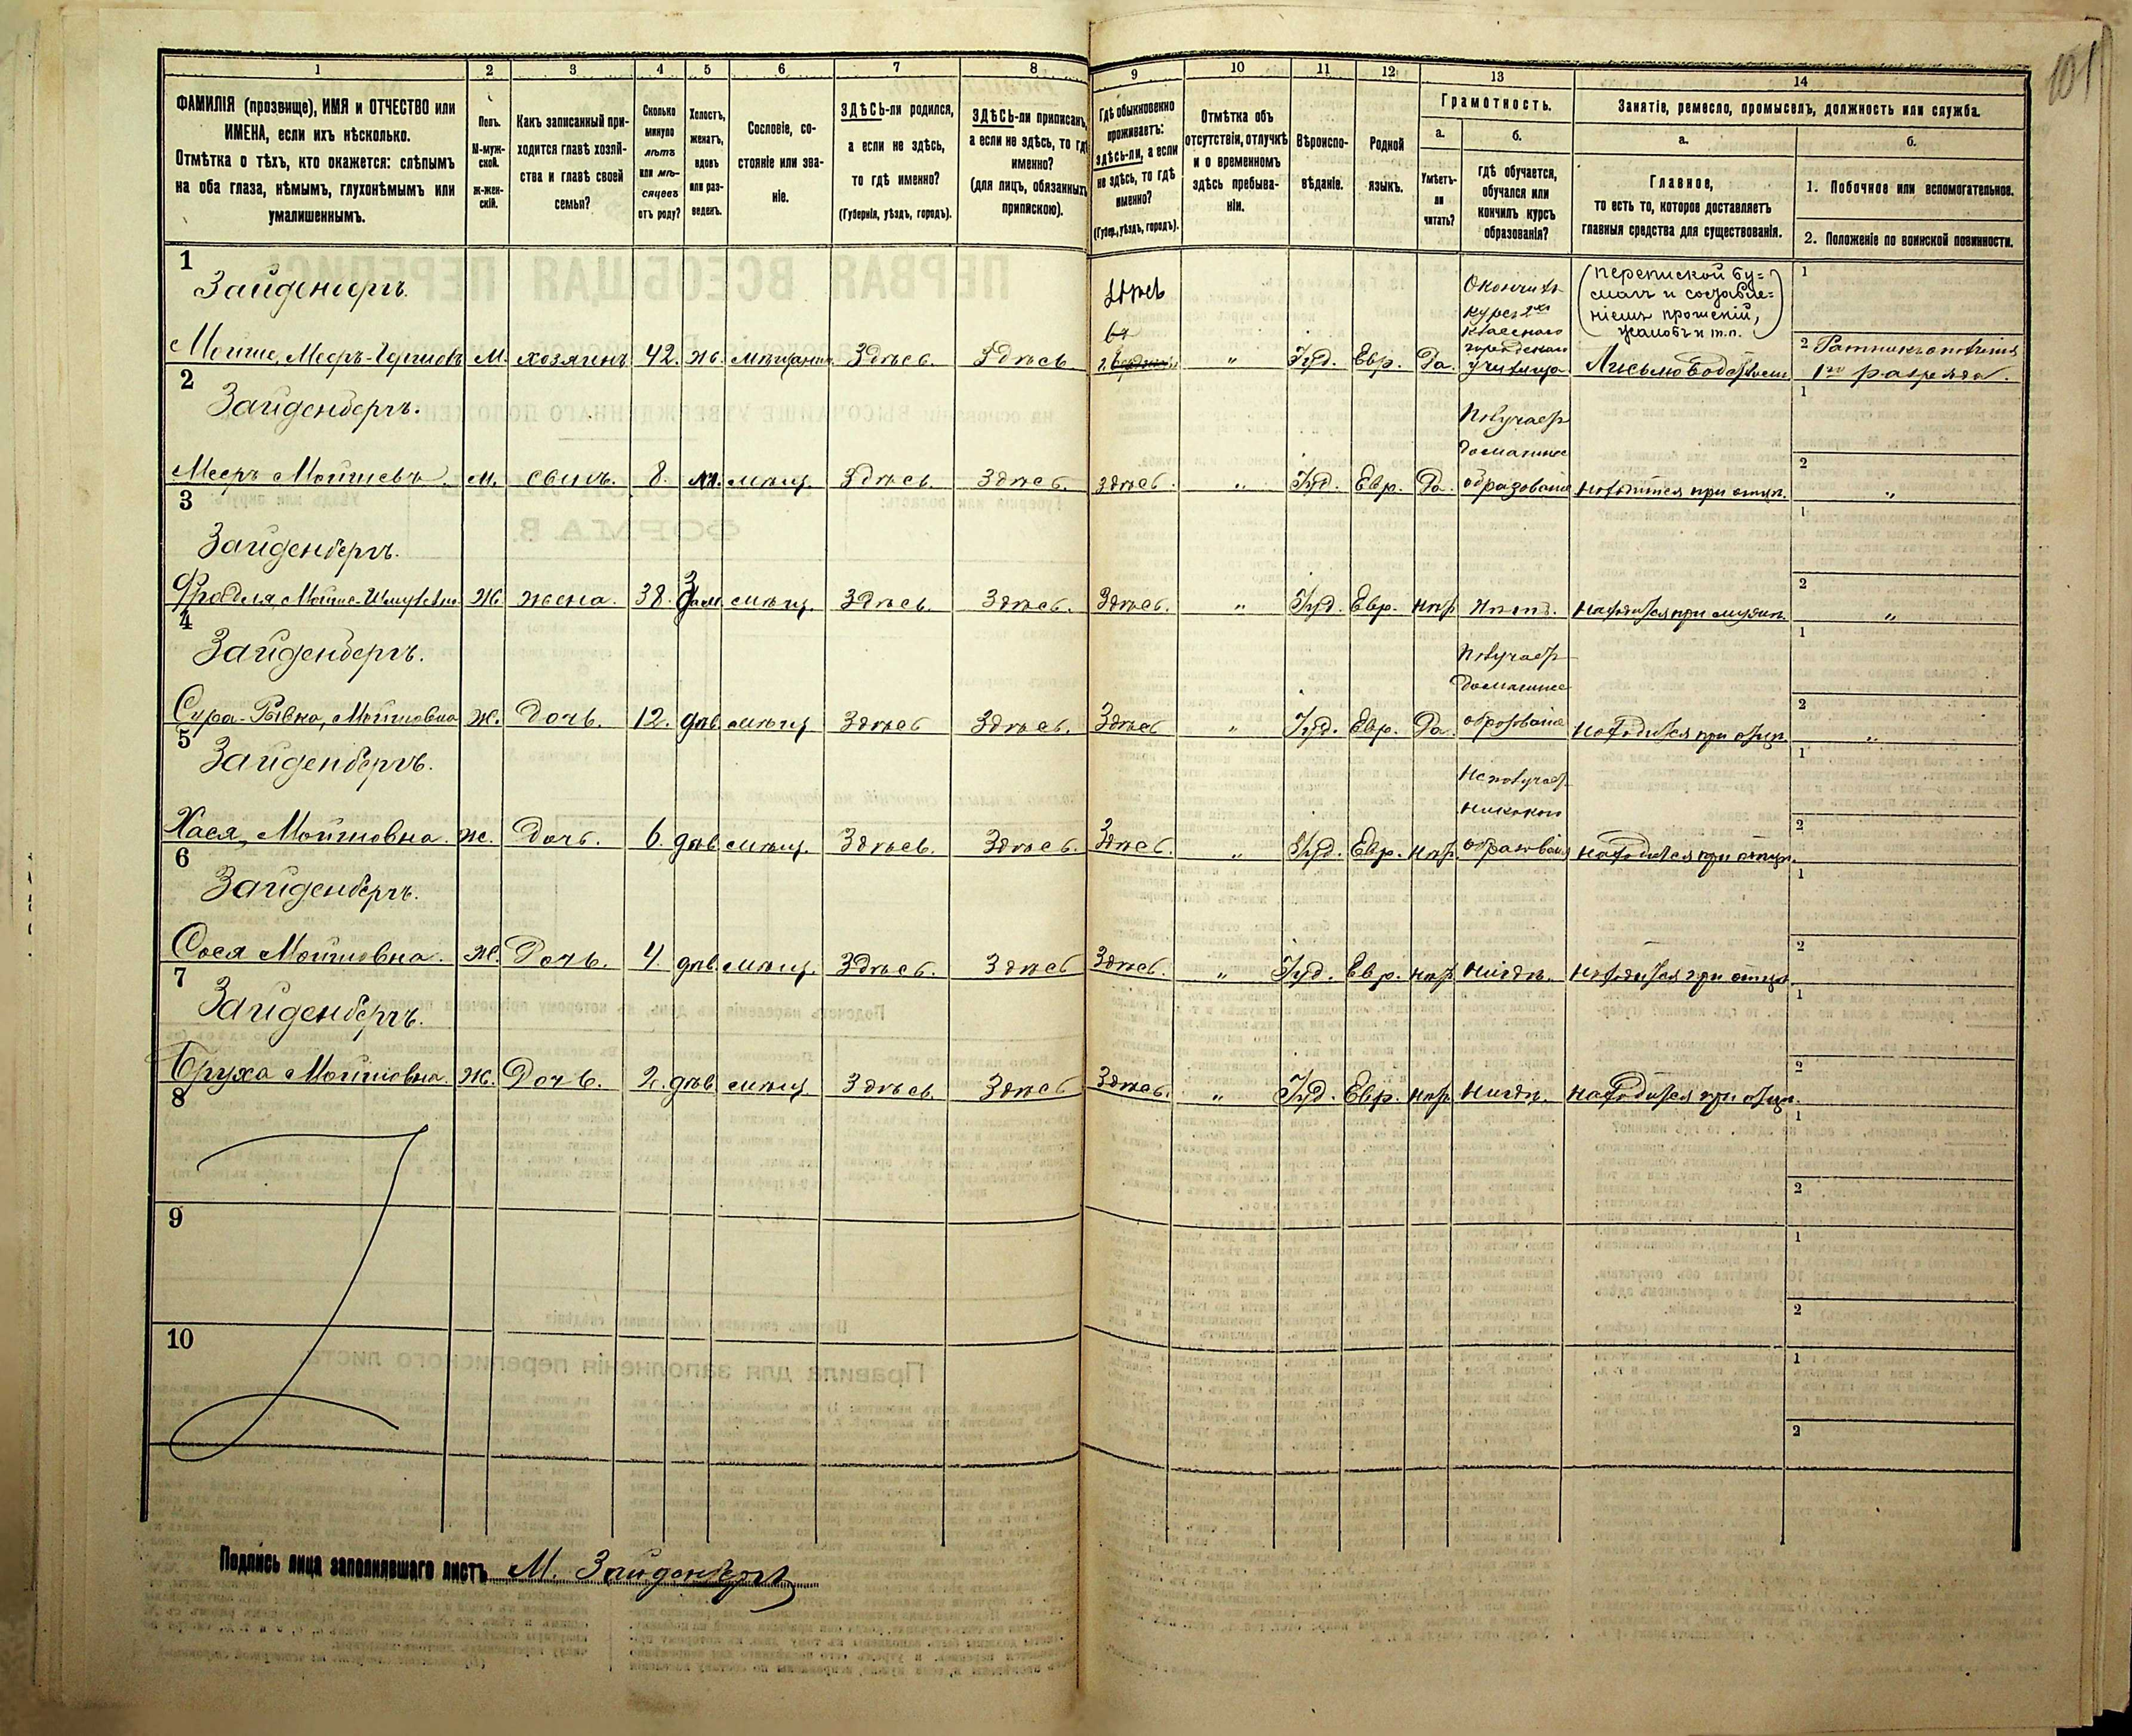 101
1 2 3 4 5 6 7 8 9 10 11 12 13 14
ФАМИЛІЯ (прозвище), ИМЯ и ОТЧЕСТВО или
ИМЕНА, если ихъ нѣсколько.
Отмѣтка о тѣхъ, кто окажется: слѣпымъ
на оба глаза, нѣмымъ, глухонѣмымъ или
умалишеннымъ.
Полъ.
М-муж-
ской.
ж-жен-
скій.
Какъ записанный при-
ходится главѣ хозяй-
ства и главѣ своей
семьи?
Сколько
минуло
лѣтъ
или мѣ-
сяцевъ
отъ роду?
Холостъ,
женатъ,
вдовъ
или раз-
веденъ.
Сословіе, со-
стояніе или зва-
ніе.
ЗДѢСЬ-ли родился,
а если не здѣсь,
то гдѣ именно?
(Губернія, уѣздъ, городъ).
ЗДѢСЬ-ли приписанъ,
а если не здѣсь, то гдѣ
именно?
(для лицъ, обязанныхъ
припискою).
Гдѣ обыкновенно
проживаетъ:
здѣсь-ли, а если
не здѣсь, то гдѣ
именно?
(Губер., уѣздъ, городъ).
Отмѣтка объ
отсутствіи, отлучкѣ
и о временномъ
здѣсь пребыва-
ніи.
Вѣроиспо-
вѣданіе.
Родной
языкъ.
Грамотность.
а.
Умѣетъ-
ли
читать?
б.
гдѣ обучается,
обучался или
кончилъ курсъ
образованія?
Занятіе, ремесло, промыселъ, должность или служба.
а.
Главное,
то есть то, которое доставляетъ
главныя средства для существованія.
б.
1. Побочное или вспомогательное.
2. Положеніе по воинской повинности.
1
Зайденбергъ.
здѣсь
Окончилъ
курсъ 2хъ
класснаго
городскаго
училища
(перепиской бу-
магъ и составле-
ніемъ прошеній,
жалобъ и т.п.)
1
Мойше, Мееръ- М. хозяинъ 42. ж. мѣщанин. Здѣсь. Здѣсь " Іуд. Евр. Да. Письмоводствомъ
2 Ратникъ ополченія
1го разряда.
2
Зайденбергъ.
Получаетъ
домашнее
образованіе
1
Мееръ Мойшевъ м. сынъ. 8. мѣщ. Здѣсь Здѣсь. здѣсь. " Іуд. Евр. Да. находится при отцѣ.
2 "
3
Зайденбергъ.
1
Фрадля, Мойше- Ж. жена. 38. Зам. мѣщ. Здѣсь. Здѣсь. Здѣсь. " Іуд. Евр. нѣт нѣтъ. находится при мужѣ.
2 "
4
Зайденбергъ.
Получаетъ
домашнее
образованіе
1
Сура-Ривка, Мойшовна Ж. Дочь. 12. дѣв. мѣщ Здѣсь Здѣсь. Здѣсь " Іуд. Евр. Да. находится при отцѣ.
2 "
5
Зайденбергъ.
Не получает
никакого
образованія
1
Хася, Мойшовна. ж. Дочь. 6. дѣв. мѣщ. Здѣсь. Здѣсь. Здѣсь. " Іуд. Евр. нѣт. находится при отцѣ.
2
6
Зайденбергъ.
1
Сося Мойшовна. Ж. Дочь. 4. дѣв. мѣщ. Здѣсь. Здѣсь Здѣсь. " Іуд. Евр. нѣт. нигдѣ. находится при отцѣ.
2
7
Зайденбергъ.
1
Бруха Мойшовна. Ж. Дочь. 2. дѣв. мѣщ. Здѣсь. Здѣсь Здѣсь. " Іуд. Евр. нѣт. нигдѣ. находится при отцѣ.
2
8
1
2
9
1
2
10
1
2
Подпись лица заполнявшаго листъ М. Зайденбергъ